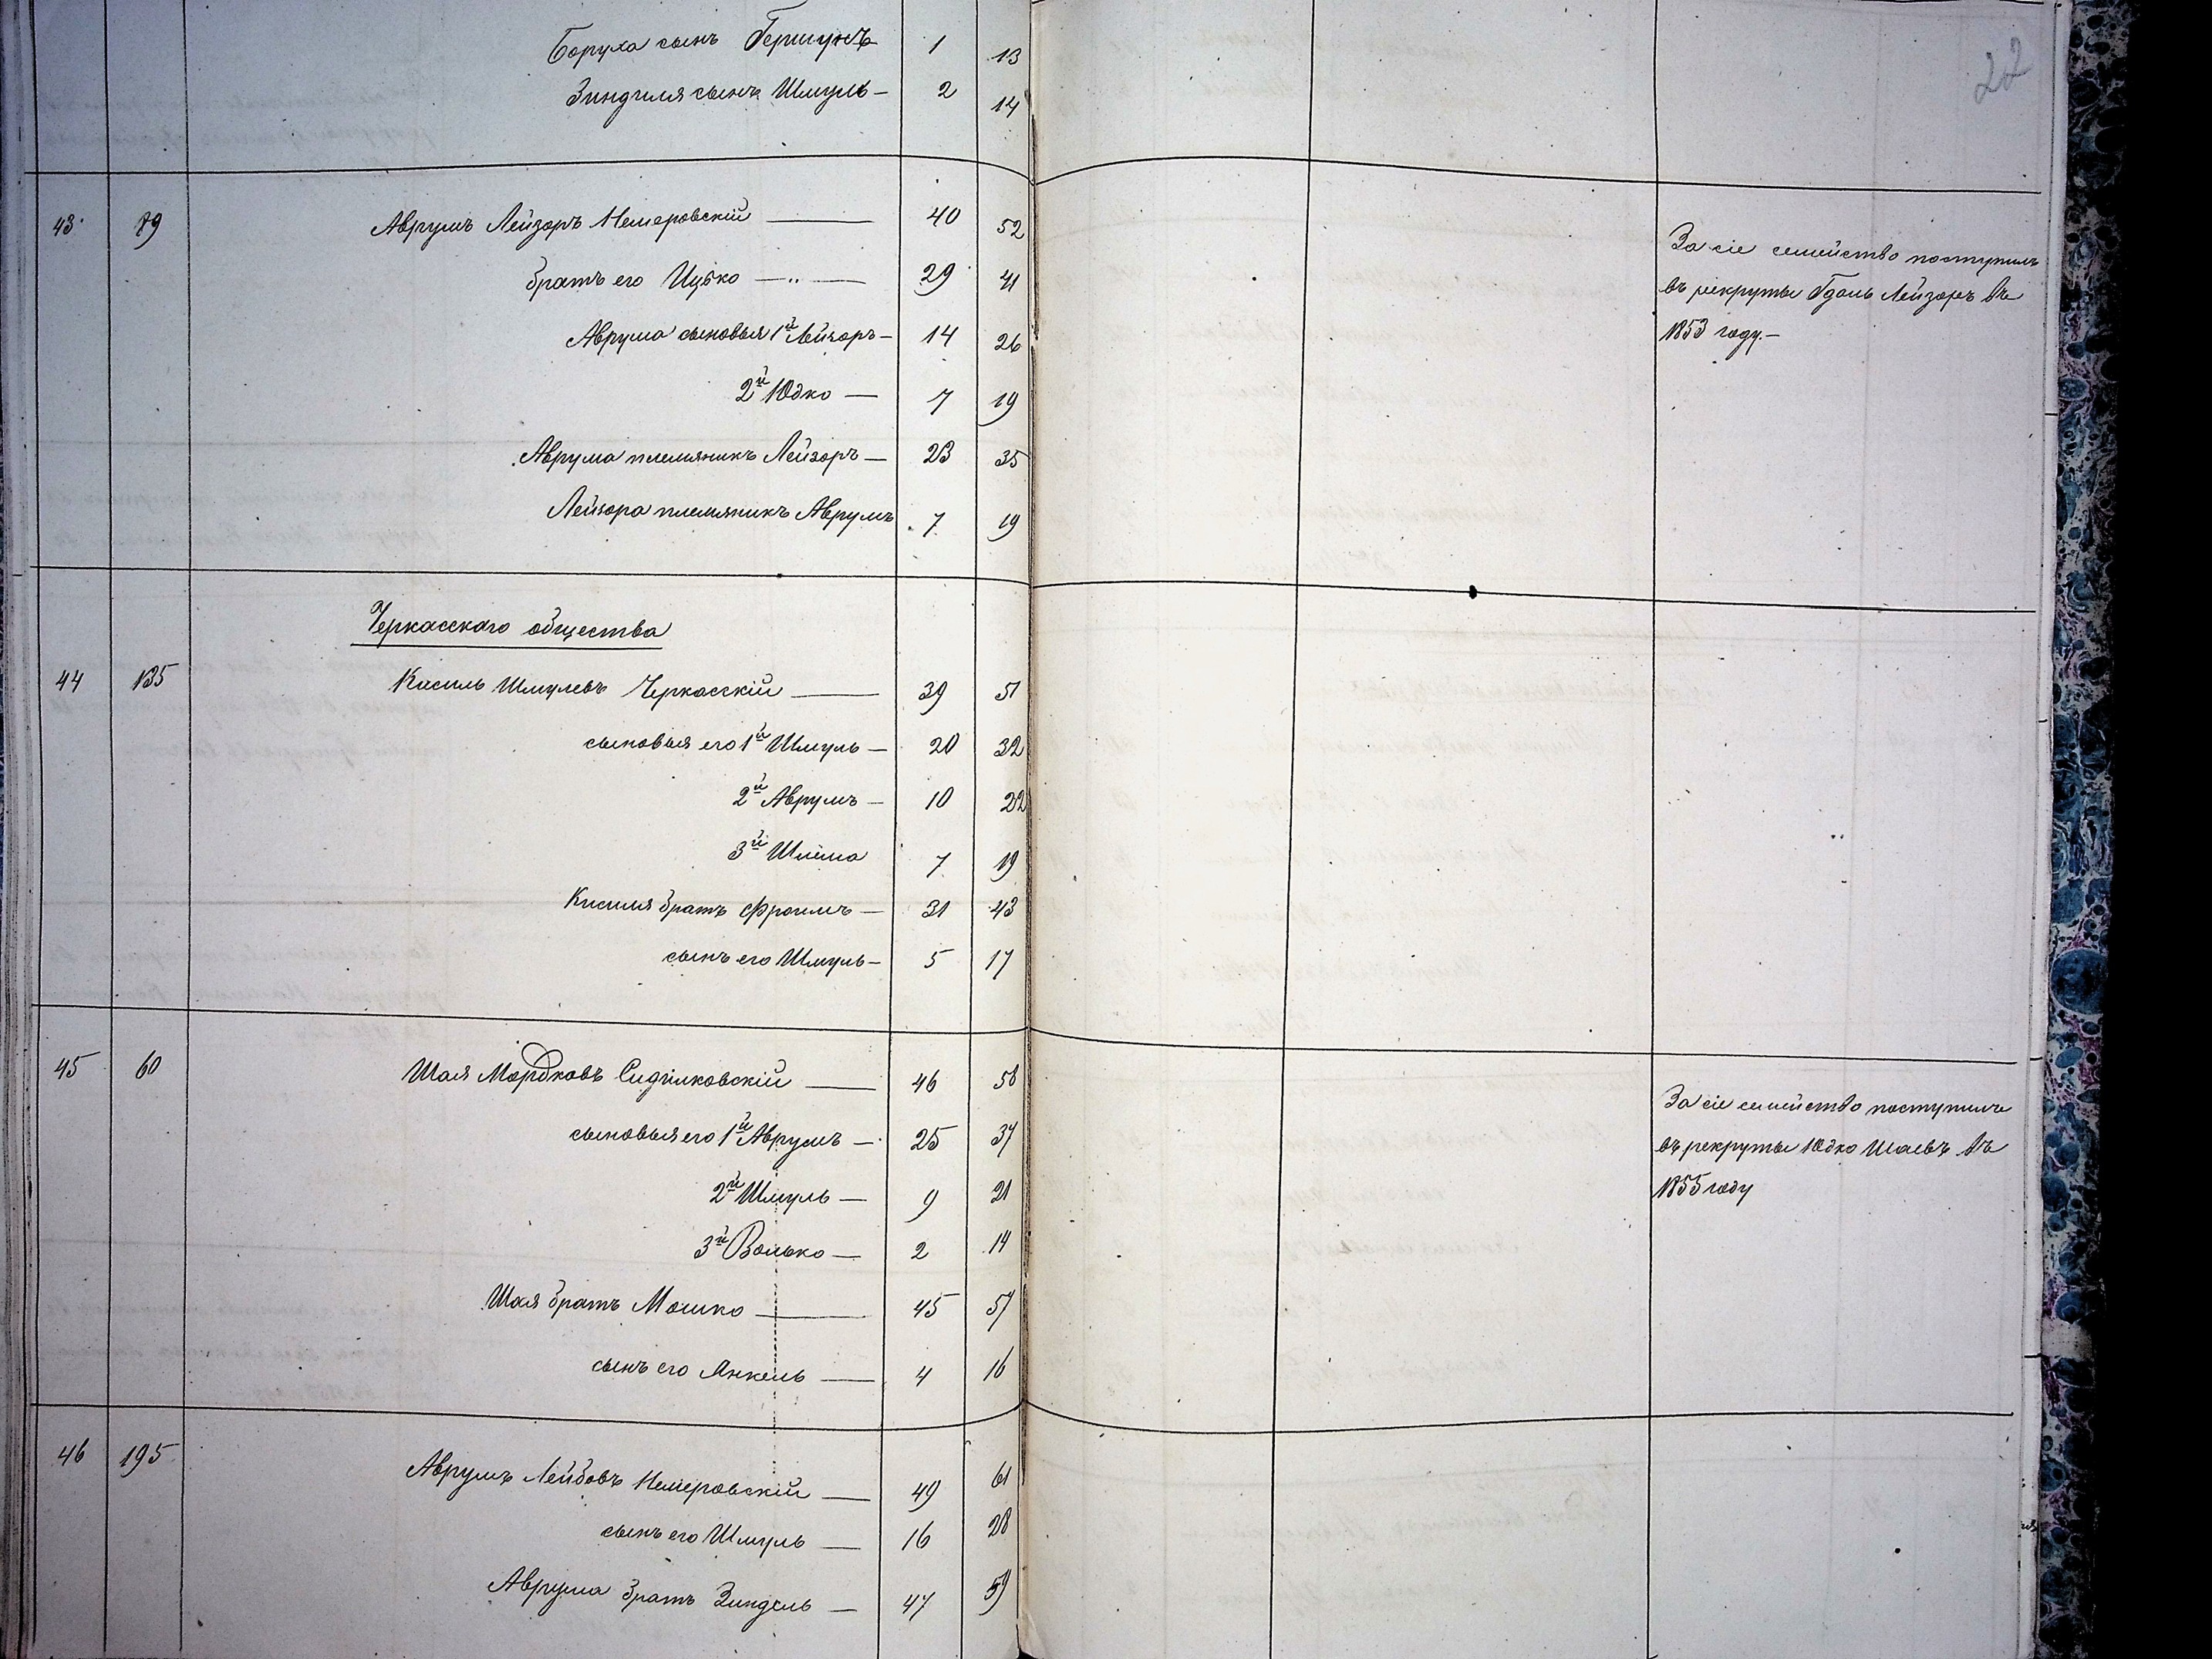 22
Боруха сынъ Гершунъ 1 13
Зинделя сынъ Шмуль — 2 14
43 79 Аврумъ Лейзоръ Немеровскій — 40 52
братъ его Ицько — „ — 29 41
Аврума сыновья 1й Лейзоръ — 14 26
2й Юдко — 7 19
Аврума племяникъ Лейзоръ — 23 35
Лейзора племяникъ Аврумъ 7 19
За сіе семейство поступилъ
въ рекруты Гдаль Лейзоръ въ
1853 году. —
Черкасскаго общества
44 135 Кисиль Шмулевъ Черкасскій — 39 51
сыновья его 1й Шмуль — 20 32
2й Аврумъ — 10 22
3й Шлёма 7 19
Кисиля братъ Фроимъ — 31 43
сынъ его Шмуль — 5 17
45 60 Шая Мордковъ Сидилковскій — 46 58
сыновья его 1й Аврумъ — 25 37
2й Шмуль — 9 21
3й Волько — 2 14
Шая братъ Мошко — 45 57
сынъ его Янкель — 4 16
За сіе семейство поступилъ
въ рекруты Юдко Шаевъ въ
1855 году
46 195 Аврумъ Лейбовъ Немеровскій — 49 61
сынъ его Шмуль — 16 28
Аврума братъ Зиндель — 47 59